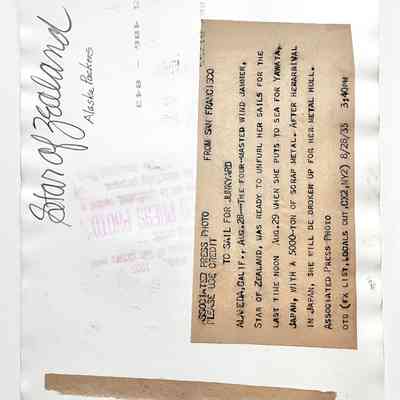 Star of Zealand
Alaska Packers
PRESS PHOTO
ASSOCIATED PRESS PHOTO
PLEASE USE CREDIT
FROM SAN FRANCISCO
TO SAIL FOR JUNKYARD
ALAMEDA, CALIF., AUG.28--THE FOUR-MASTED WIND JAMMER,
STAR OF ZEALAND, WAS READY TO UNFURL HER SAILS FOR THE
LAST TIME NOON AUG.29 WHEN SHE PUTS TO SEA FOR YAWATA,
JAPAN, WITH A 5000-TON OF SCRAP METAL. AFTER HERARRIVAL
IN JAPAN, SHE WILL BE BROKEN UP FOR HER METAL HULL.
ASSOCIATED PRESS PHOTO
OTS (FX LIST, LOCALS OUT, CX2, NY2) 8/28/35 3:40PM